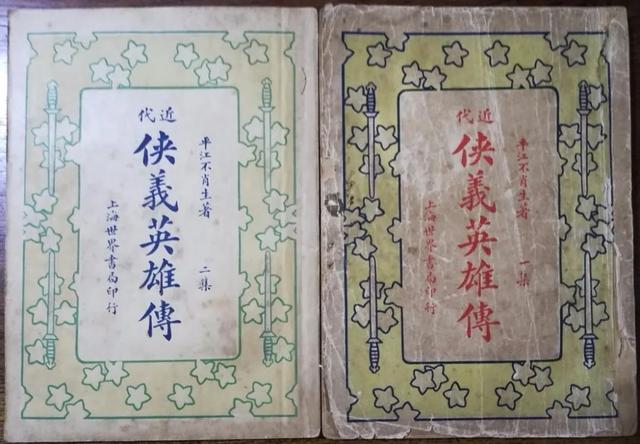 近代
侠義英雄傳
平江不肖生著
二集
上海世界書局印行
近代
侠義英雄傳
平江不肖生著
一集
上海世界書局印行